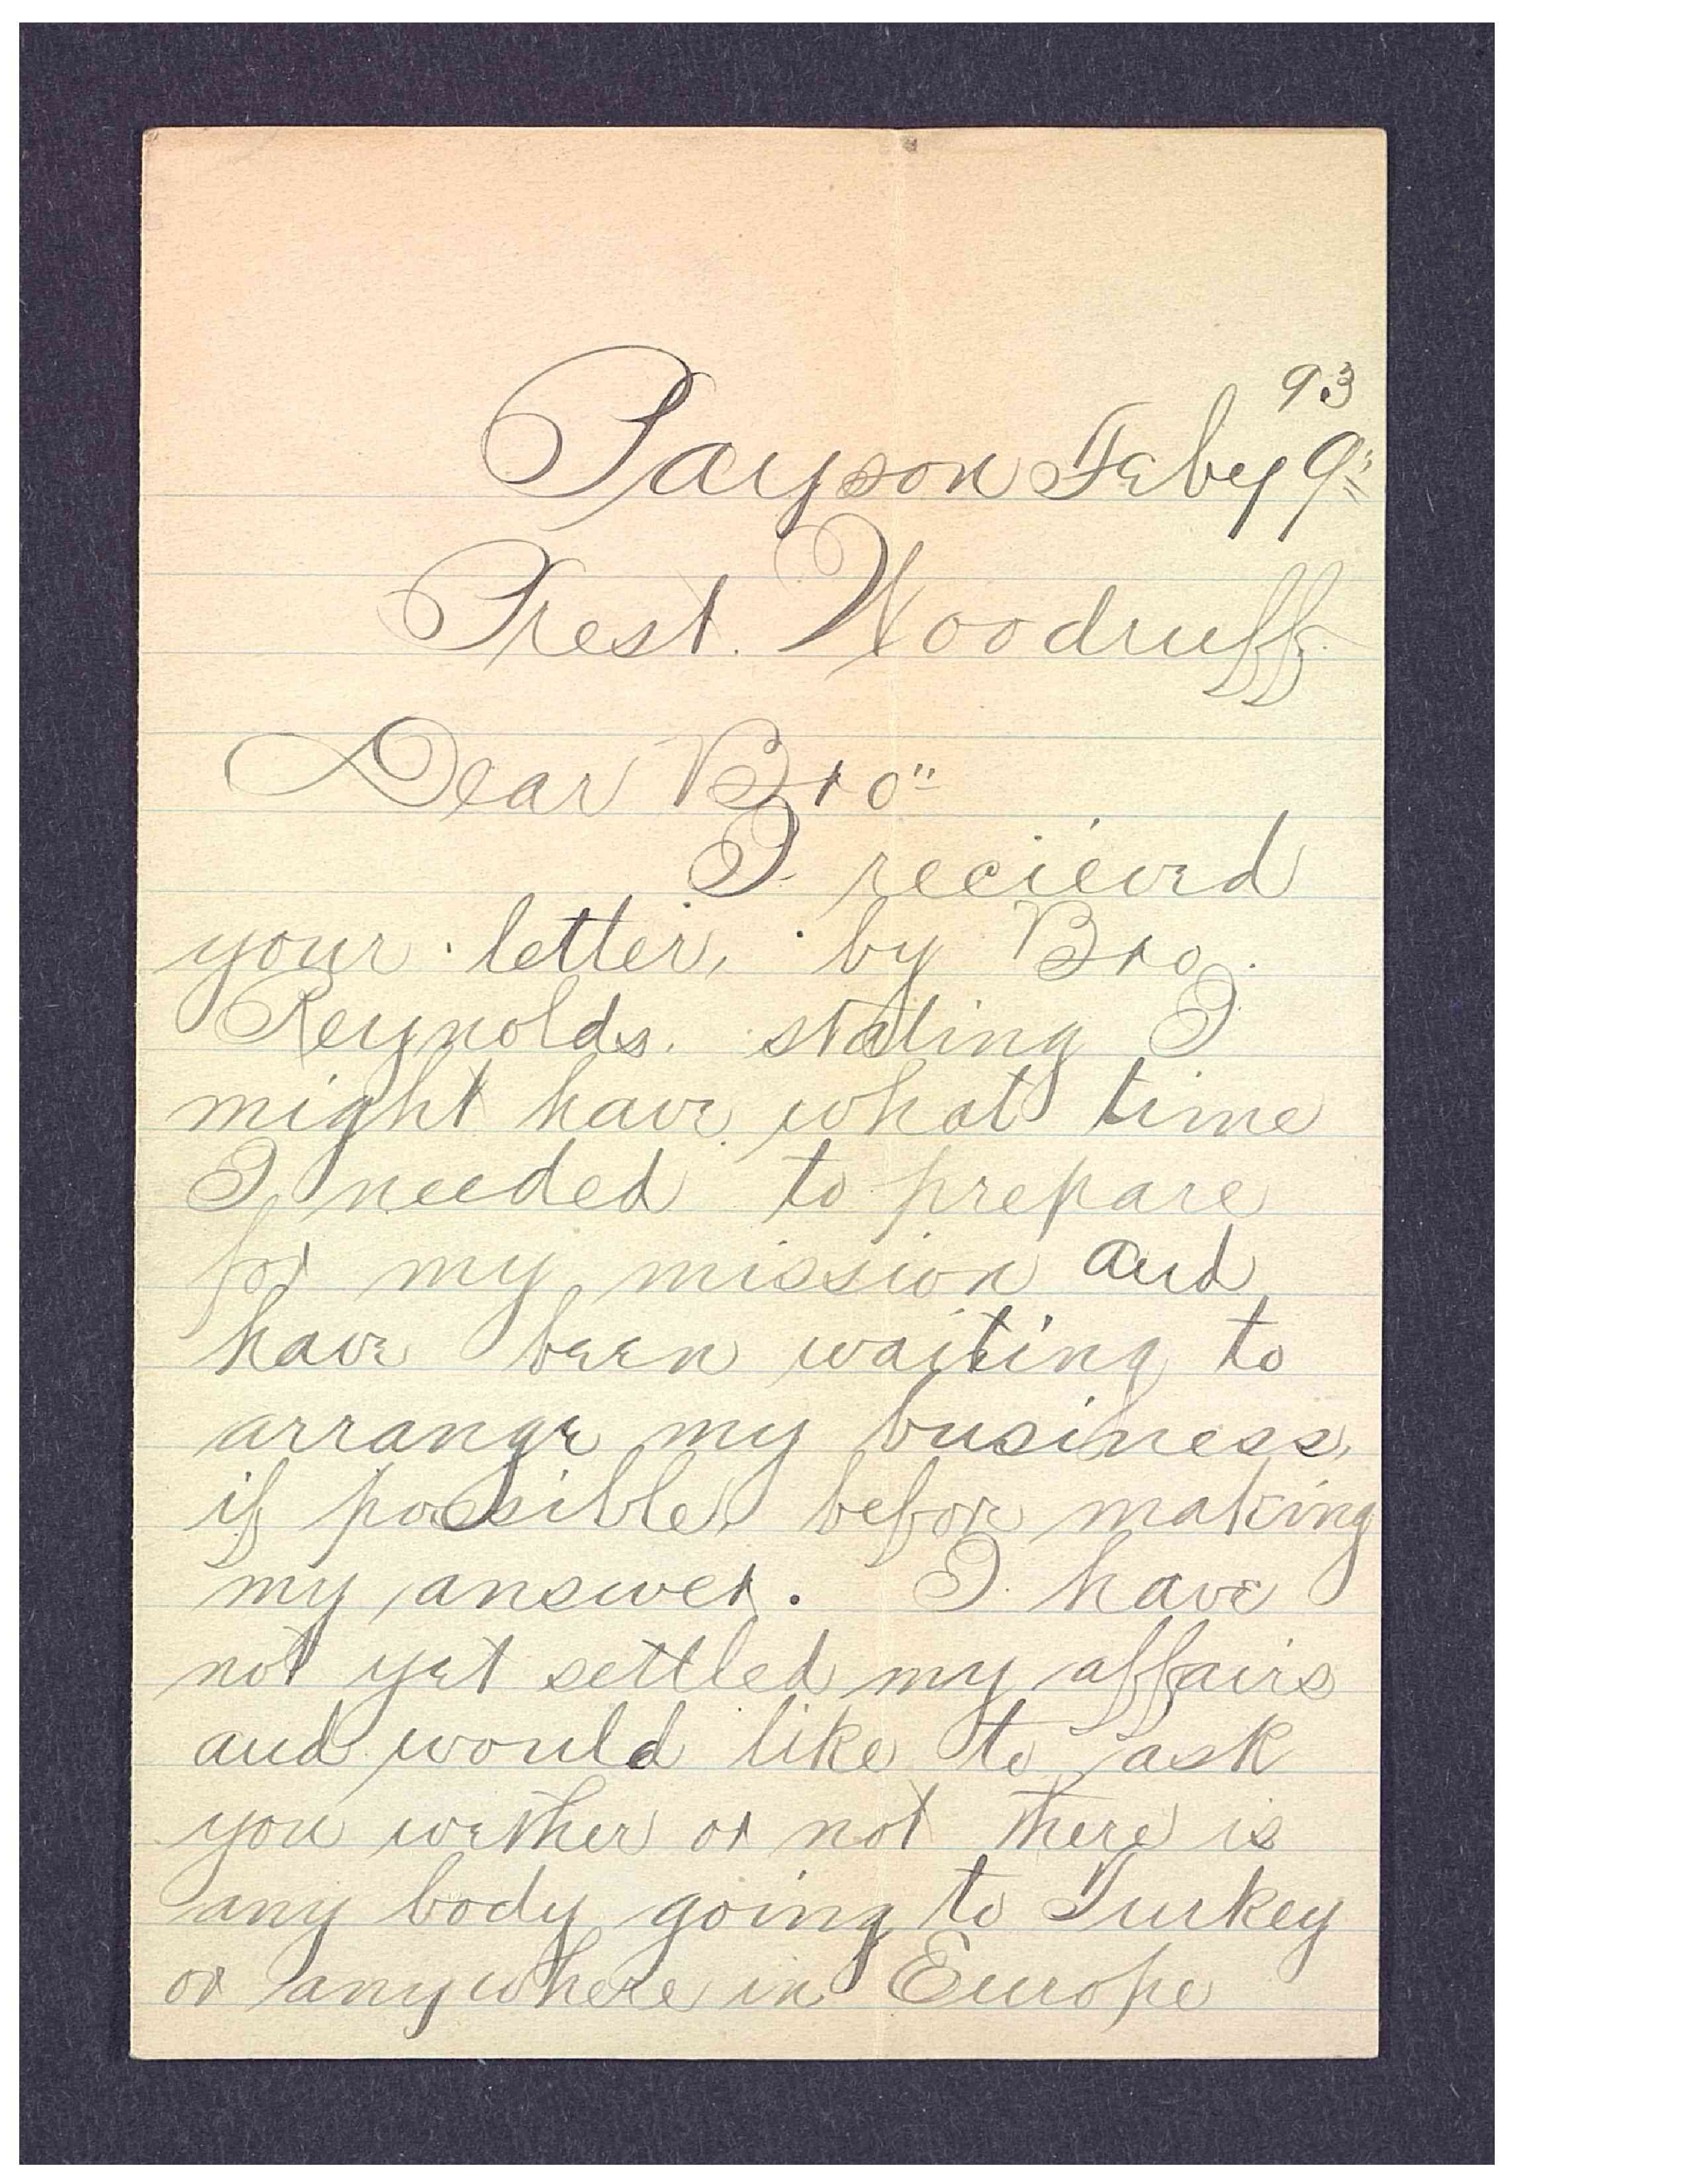 93
Payson Feby 9"
Prest. Woodruff.
Dear Bro"
I recieved
your letter, by Bro.
Reynolds. stating I
might have what time
I needed to prepare
for my mission and
have been waiting to
arrange my business,
if possible, before making
my answer. I have
not yet settled my affairs
and would like to ask
you wether or not there is
any body going to Turkey
or anywhere in Europe